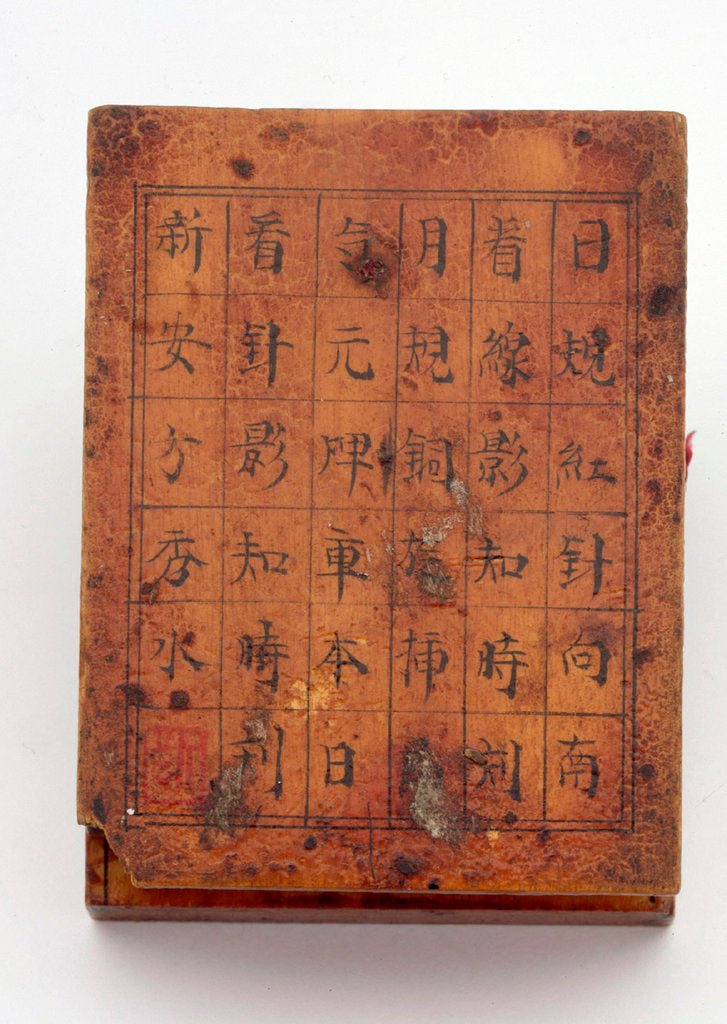 日規紅針向南
看線影知時刻
月規銅挿
元車本日
看針影知時刻
新安方秀水